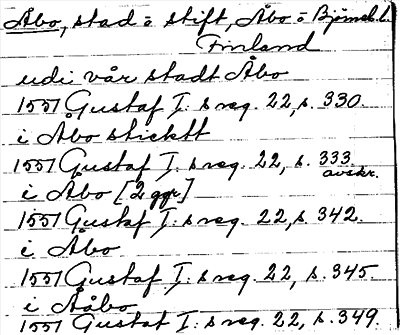 Åbo, stad o stift, Åbo o Björneb. l.
Finland
udi vår stadt Åbo
1557 Gustaf I:s reg. 22, s. 330.
i Åbo sticktt
1557 Gustaf I:s reg. 22, s. 333
avskr.
i Åbo [2 ggr]
1557 Gustaf I:s reg. 22, s. 342.
i Åbo
1557 Gustaf I:s reg. 22, s. 345.
i Aåbo
1557 Gustaf I:s reg. 22, s. 349.